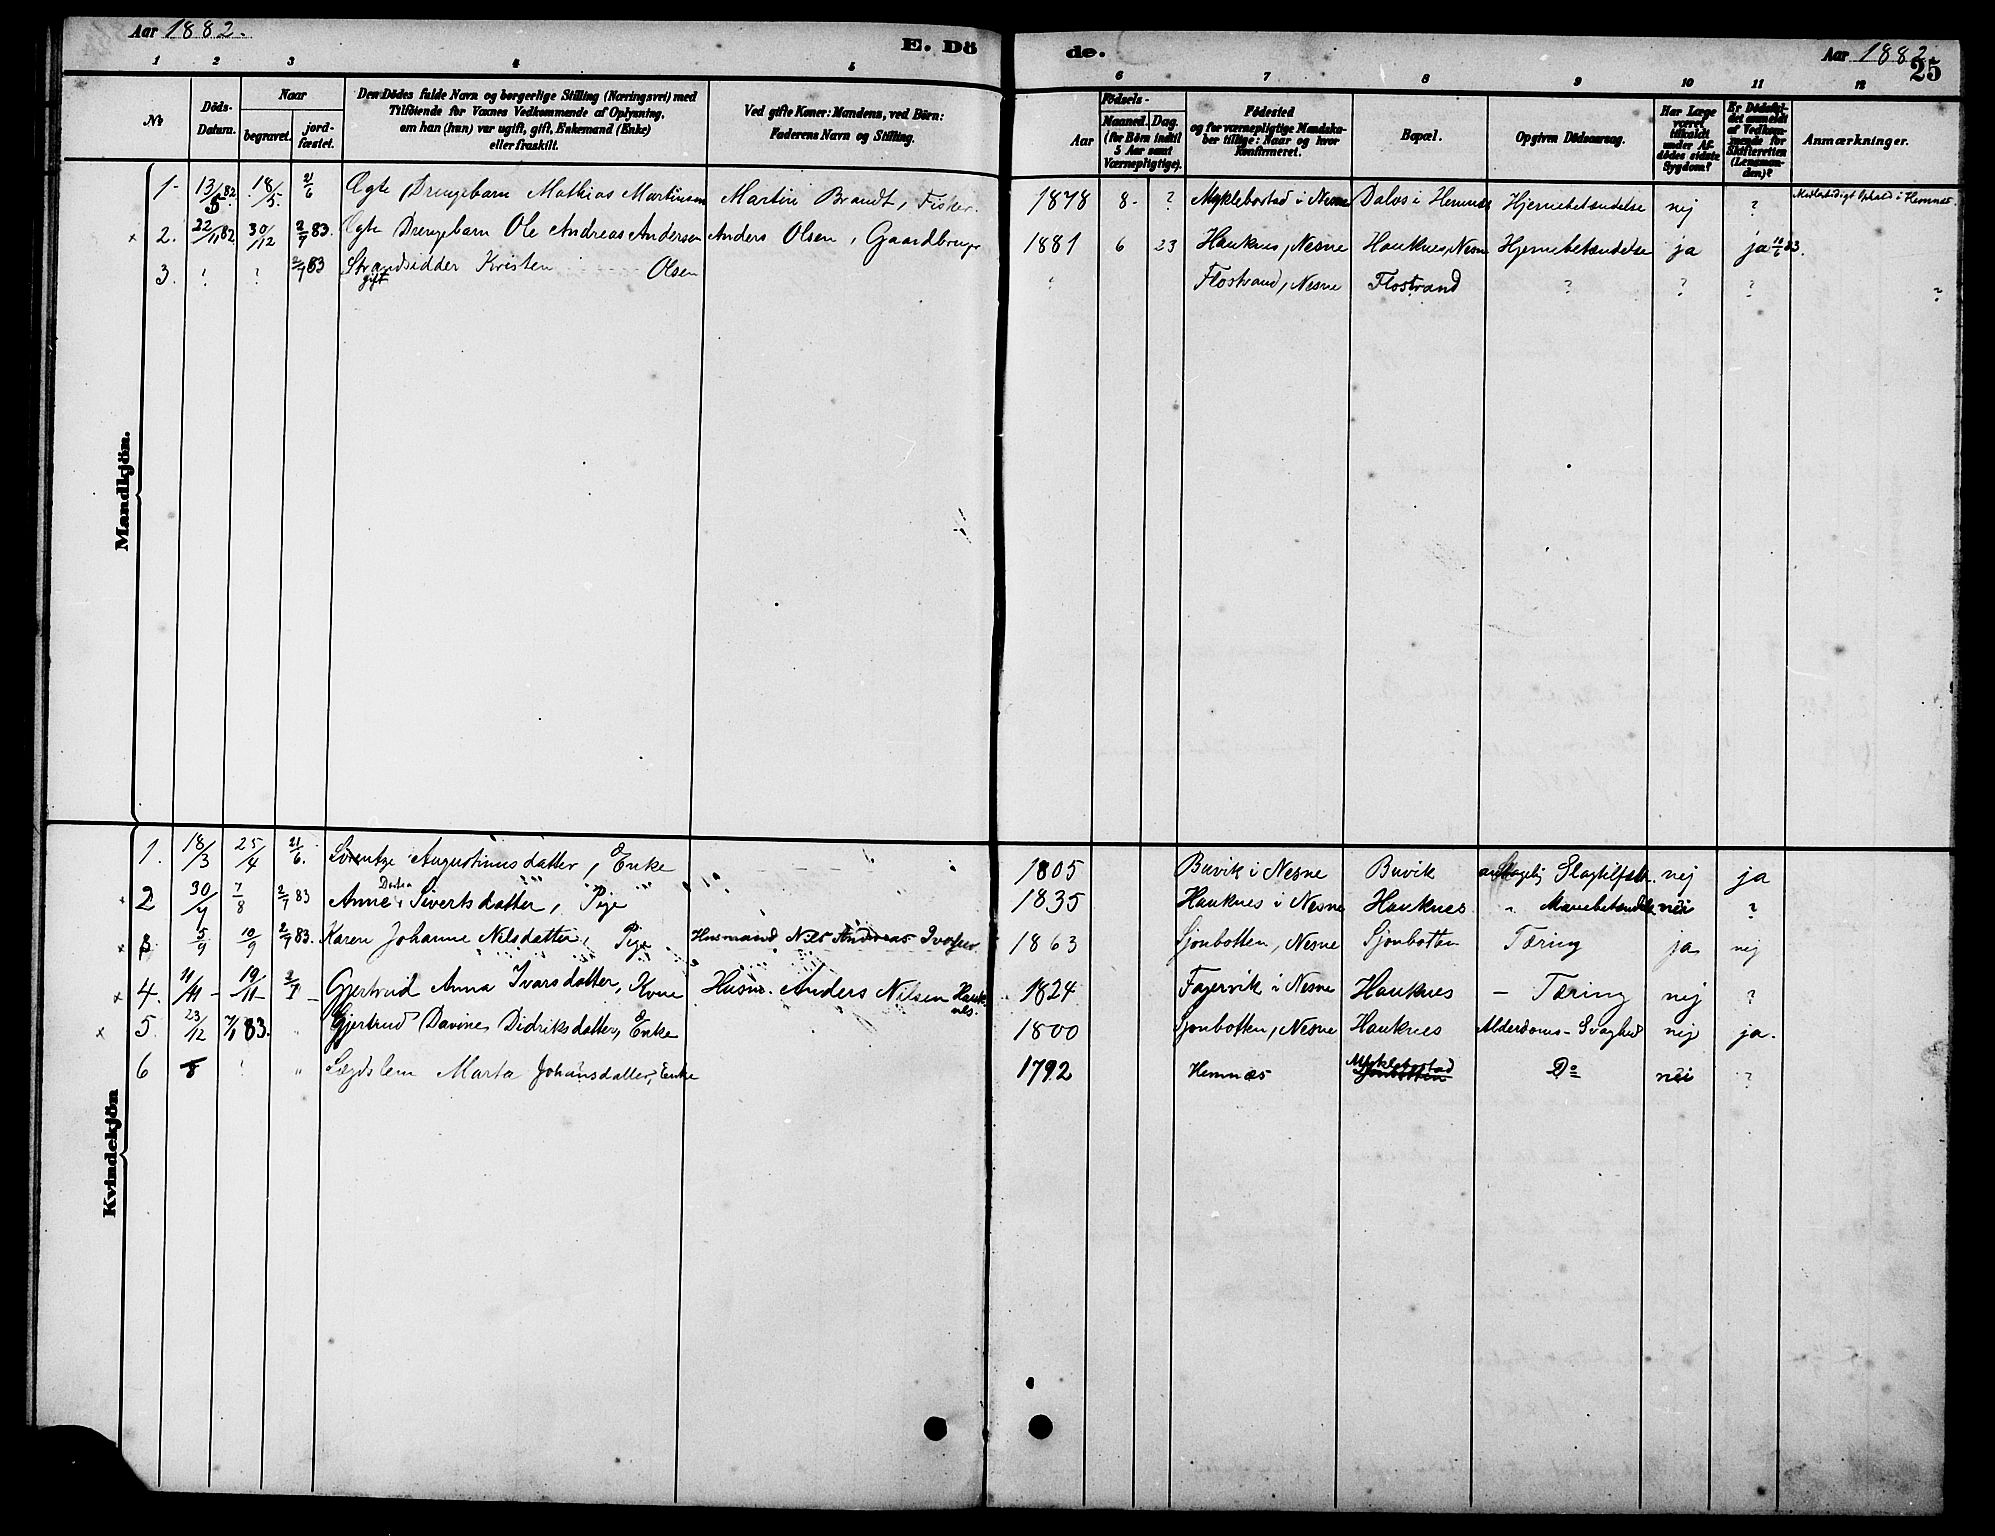 Aar 1882.
E. Dö
de.
Aar 1882
25
1 2 3 4 5 6 7 8 9 10 11 12
No
Döds-
Datum.
Naar
begravet.
jord-
fæstet.
Den Dödes fulde Navn og borgerlige Stilling (Næringsvei) med
Tilföiende for Voxnes Vedkommende af Oplysning,
om han (hun) var ugift, gift, Enkemand (Enke)
eller fraskilt.
Ved gifte Koner: Mandens, ved Börn:
Faderens Navn og Stilling.
Födsels-
Aar
Maaned.
Dag.
(for Börn indtil
5 Aar samt
Værnepligtige).
Födested
og for værnepligtige Mandska-
ber tillige: Naar og hvor
Konfirmeret.
Bopæl.
Opgiven Dödsaarsag.
Har Læge
været
tilkaldt
under Af-
dödes sidste
Sygdom?
Er Dödsfal-
det anmeldt
af Vedkom-
mende for
Skifteretten
(Lensman-
den)?
Anmærkninger.
Mandkjön.
1- 13/5 82 18/5 21/6 Ægte Drengebarn Mathias Martinsen Martin Brandt, Fisker. 1878 8- ? Myklebostad i Nesne Dalos i Hemnes Hjernebetændelse nej ? Ophold i Hemnes
x 2. 22/11 82 30/12 2/7 83. Ægte Drengebarn Ole Andreas Andersen Anders Olsen, Gaardbruger 1881 6 23 Hauknes, Nesne Hauknes, Nesne Hjernebetændelse ja ja 10/6 83.
3. ? ? 2/7 83 Strandsidder Kristen Olsen Flostrand, Nesne Flostrand ? ? ? ?
gift
Kvindekjön
1. 18/3 25/4 21/6. Lorentze Augustinusdatter, Enke 1805 Buvik i Nesne Buvik Slagtilfælde. nej ja
2 30/7 7/8 2/7 83 Anne Dortea Sivertsdatter, Pige 1835 Hauknes i Nesne Hauknes " Mavebetændelse nei ?
x 3 5/9 10/9 2/7 83. Karen Johanne Nilsdatter, Pige Husmand Nils Andreas Ivarsen 1863 Sjonbotten, Nesne Sjonbotten Tæring ja nej
x 4. 11/11 - 19/11 - 2/7 - Gjertrud Anna Ivarsdatter, Kone Husm. Anders Nilsen Hauk-
nes. 1824 Fagervik i Nesne Hauknes - Tæring nej ?
x 5. 23/12 7/1 83. " Gjertrud Davine Didriksdatter, Enke 1800 Sjonbotten, Nesne Hauknes Alderdoms-Svaghed nej ja.
6 ? ? " Lægdslem Marta Johansdatter, Enke 1792 Hemnæs Myklebostad Do nei ?
Sjonbotten